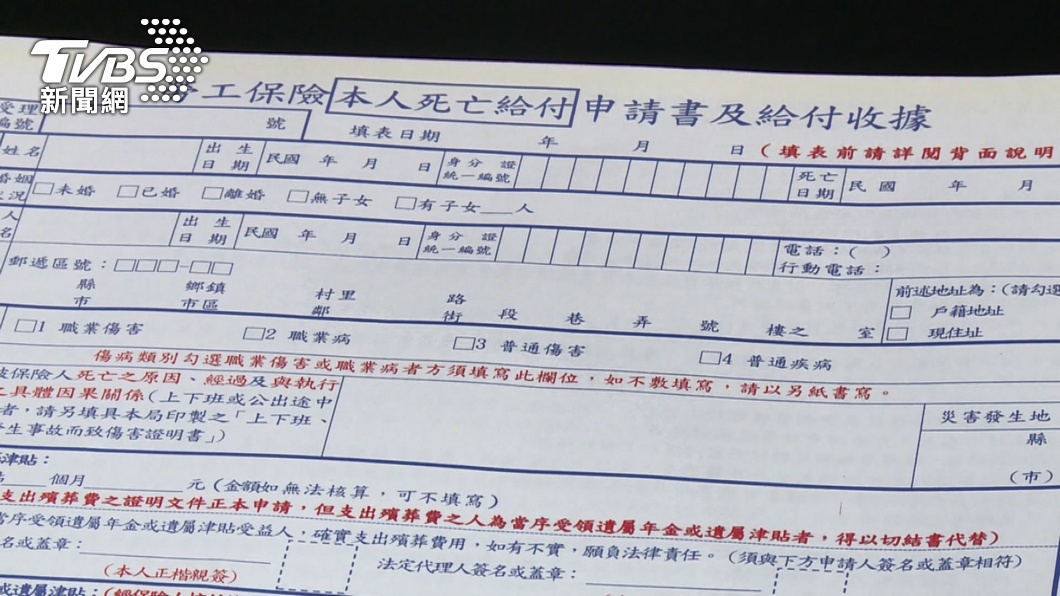 TVBS
新聞網
工保險 本人死亡給付 申請書及給付收據
受理
編號
號
填表日期 年 月 日 (填表前請詳閱背面說明
姓名
出生
日期
民國 年 月 日
身分證
統一編號
死亡
日期
民國 年 月
婚姻
狀況
□未婚 □已婚 □離婚 □無子女 □有子女___人
人
名
出生
日期
民國 年 月 日
身分證
統一編號
電話:( )
行動電話:
郵遞區號:□□□-□□
縣
市
鄉鎮
市區
村里
鄰
路
街
段 巷 弄 號 樓之 室
前述地址為:(請勾選
□ 戶籍地址
□ 現住址
□1 職業傷害 □2 職業病 □3 普通傷害 □4 普通疾病
傷病類別勾選職業傷害或職業病者方須填寫此欄位,如不敷填寫,請以另紙書寫。
被保險人死亡之原因、經過及與執行
之具體因果關係(上下班或公出途中
者,請另填具本局印製之「上下班、
發生事故而致傷害證明書」)
災害發生地
縣
(市)
津貼:
個月 元(金額如無法核算,可不填寫)
支出殯葬費之證明文件正本申請,但支出殯葬費之人為當序受領遺屬年金或遺屬津貼者,得以切結書代替)
當序受領遺屬年金或遺屬津貼受益人,確實支出殯葬費用,如有不實,願負法律責任。(須與下方申請人簽名或蓋章相符)
名或蓋章:
(本人正楷親簽)
法定代理人簽名或蓋章:
或遺屬津貼: